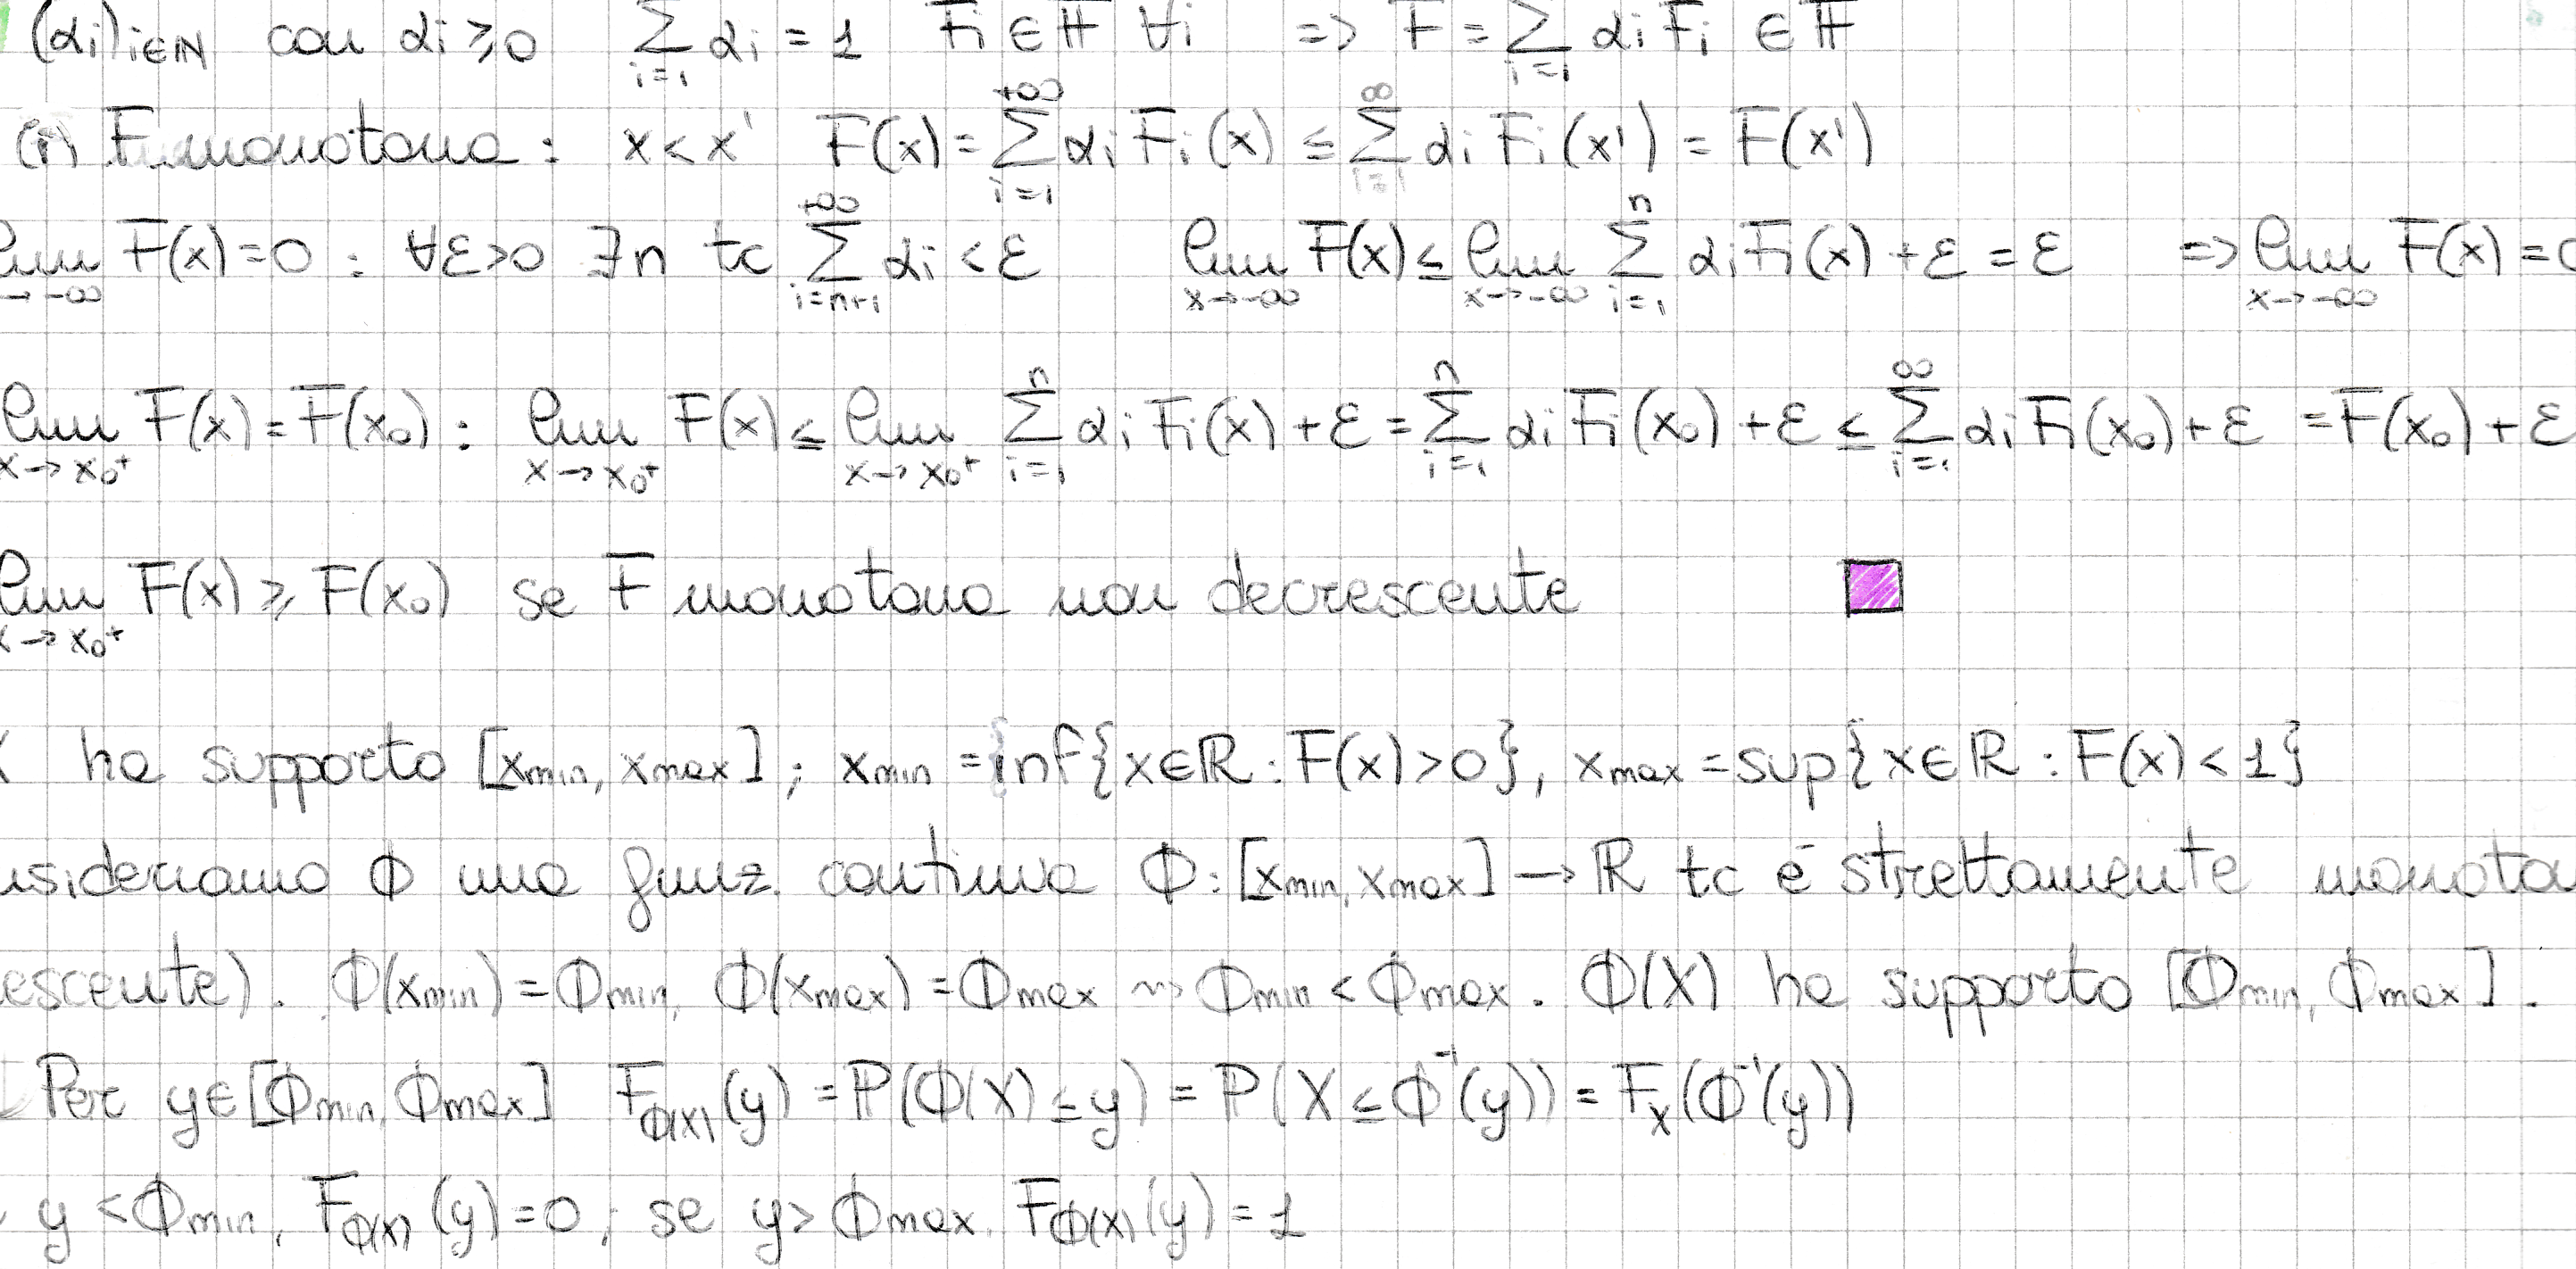 (αi)i∈ℕ con αi ≥ 0 ∑i=1 αi = 1 Fi ∈ 𝔽 ∀i => F = ∑i=1 αi Fi ∈ 𝔽
(i) F monotona : x < x' F(x) = ∑i=1+∞ αi Fi(x) ≤ ∑i=1∞ αi Fi(x') = F(x')
lim→-∞ F(x) = 0 : ∀ε>0 ∃n tc ∑i=n+1+∞ αi < ε limx→-∞ F(x) ≤ limx→-∞ ∑i=1n αi Fi(x) + ε = ε => limx→-∞ F(x) = 0
limx→x0+ F(x) = F(x0) : limx→x0+ F(x) ≤ limx→x0+ ∑i=1n αi Fi(x) + ε = ∑i=1n αi Fi(x0) + ε ≤ ∑i=1∞ αi Fi(x0) + ε = F(x0) + ε
limx→x0+ F(x) ≥ F(x0) se F monotona non decrescente
X ha supporto [xmin, xmax] ; xmin = inf{x∈ℝ : F(x) > 0}, xmax = sup{x∈ℝ : F(x) < 1}
nsideriamo Φ una funz. continua Φ : [xmin, xmax] → ℝ tc è strettamente monoto
escente). Φ(xmin) = Φmin, Φ(xmax) = Φmax ⇝ Φmin < Φmax . Φ(X) ha supporto [Φmin, Φmax] .
Per y∈[Φmin, Φmax] FΦ(X)(y) = P(Φ(X) ≤ y) = P(X ≤ Φ⁻¹(y)) = FX(Φ⁻¹(y))
y < Φmin, FΦ(X)(y) = 0 ; se y > Φmax, FΦ(X)(y) = 1